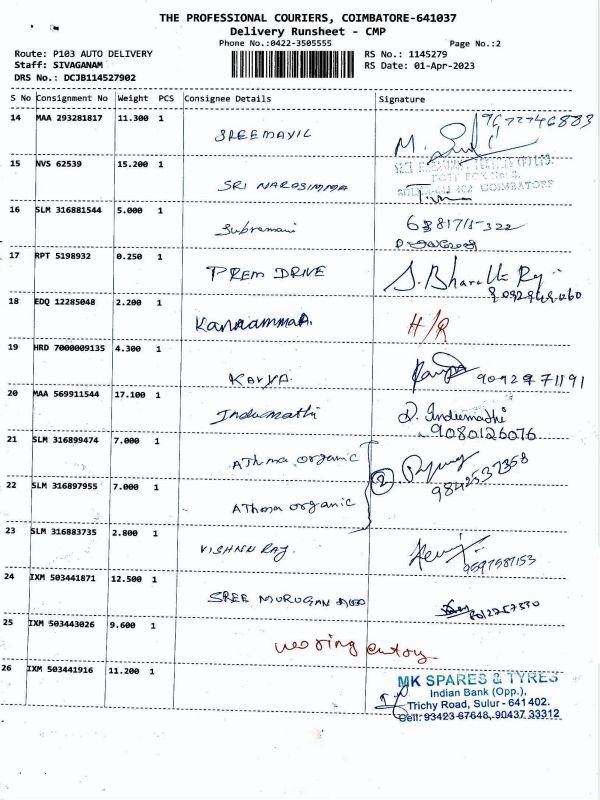 THE PROFESSIONAL COURIERS, COIMBATORE-641037
Delivery Runsheet - CMP
Phone No.:0422-3505555 Page No.:2
Route: P103 AUTO DELIVERY RS No.: 1145279
Staff: SIVAGANAM RS Date: 01-Apr-2023
DRS No.: DCJB114527902
S No Consignment No Weight PCS Consignee Details Signature
14 MAA 293281817 11.300 1 SREEMAYIL
15 NVS 62539 15.200 1 SRI NARASIMMA
COIMBATORE
16 SLM 316881544 5.000 1 Subramani
17 RPT 5198932 0.250 1 PREM DRIVE
18 EDQ 12285048 2.200 1 Kannammaa. H/R
19 HRD 7000009135 4.300 1 Kavya.
20 MAA 569911544 17.100 1 Indumathi D. Indumathi
9080126076
21 SLM 316899474 7.000 1 AThma organic 2
9842537358
22 SLM 316897955 7.000 1 AThma organic
23 SLM 316883735 2.800 1 VISHNU RAJ.
9597587153
24 IXM 503441871 12.500 1 SREE MURUGAN
25 IXM 503443026 9.600 1 entry
26 IXM 503441916 11.200 1 MK SPARES & TYRES
Indian Bank (Opp.),
Trichy Road, Sulur - 641 402.
Cell: 93423 67648, 90437 33312